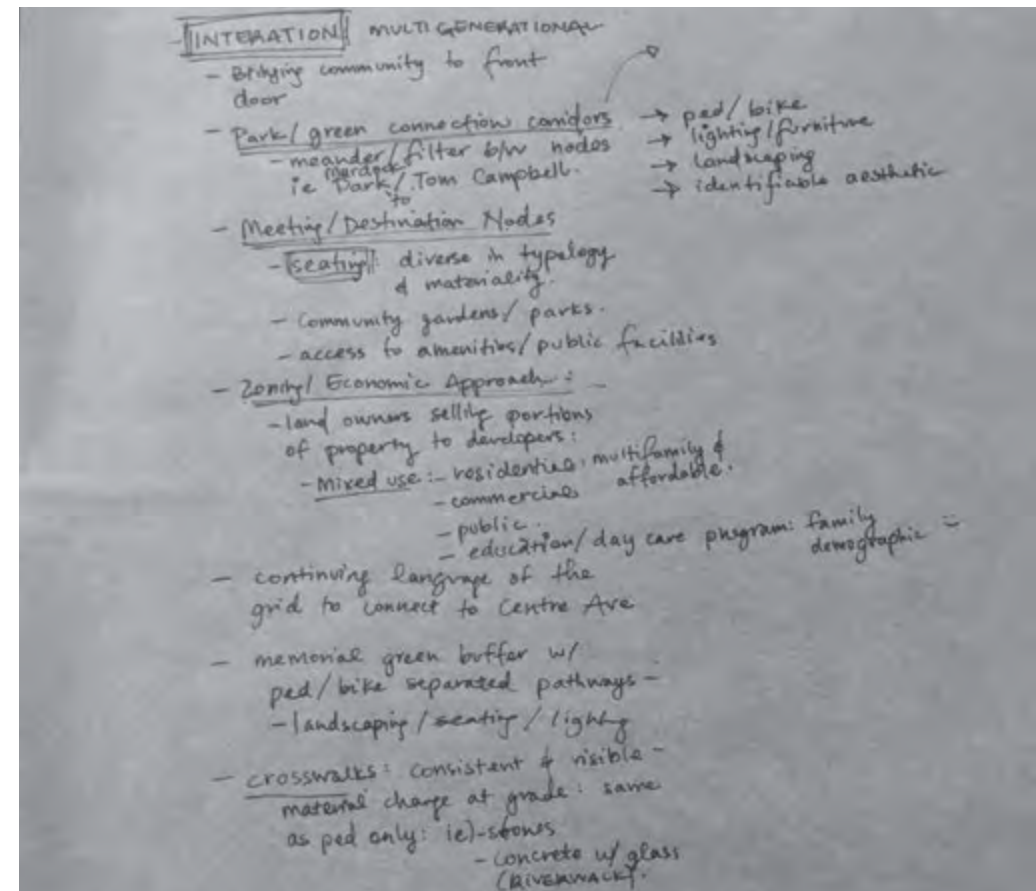 - INTERATION MULTI GENERATIONAL
- Bringing community to front
door
- Park/green connection corridors → ped/bike
→ lighting/furniture
- meander/filter b/w nodes → landscaping
murdock
ie Park/Tom Campbell. → identifiable aesthetic
to
- Meeting/Destination Nodes
- seating: diverse in typology
& materiality.
- Community gardens/parks.
- access to amenities/public facilities
- Zoning/Economic Approach: -
- land owners selling portions
of property to developers:
- Mixed use: - residential: multifamily &
affordable.
- commercial
- public.
- education/day care program: family
demographic -
- continuing language of the
grid to connect to Centre Ave
- memorial green buffer w/
ped/bike separated pathways -
- landscaping/seating/lighting
- crosswalks: consistent & visible -
material change at grade: same
as ped only: ie) - stones
- concrete w/ glass
(RIVERWALK).